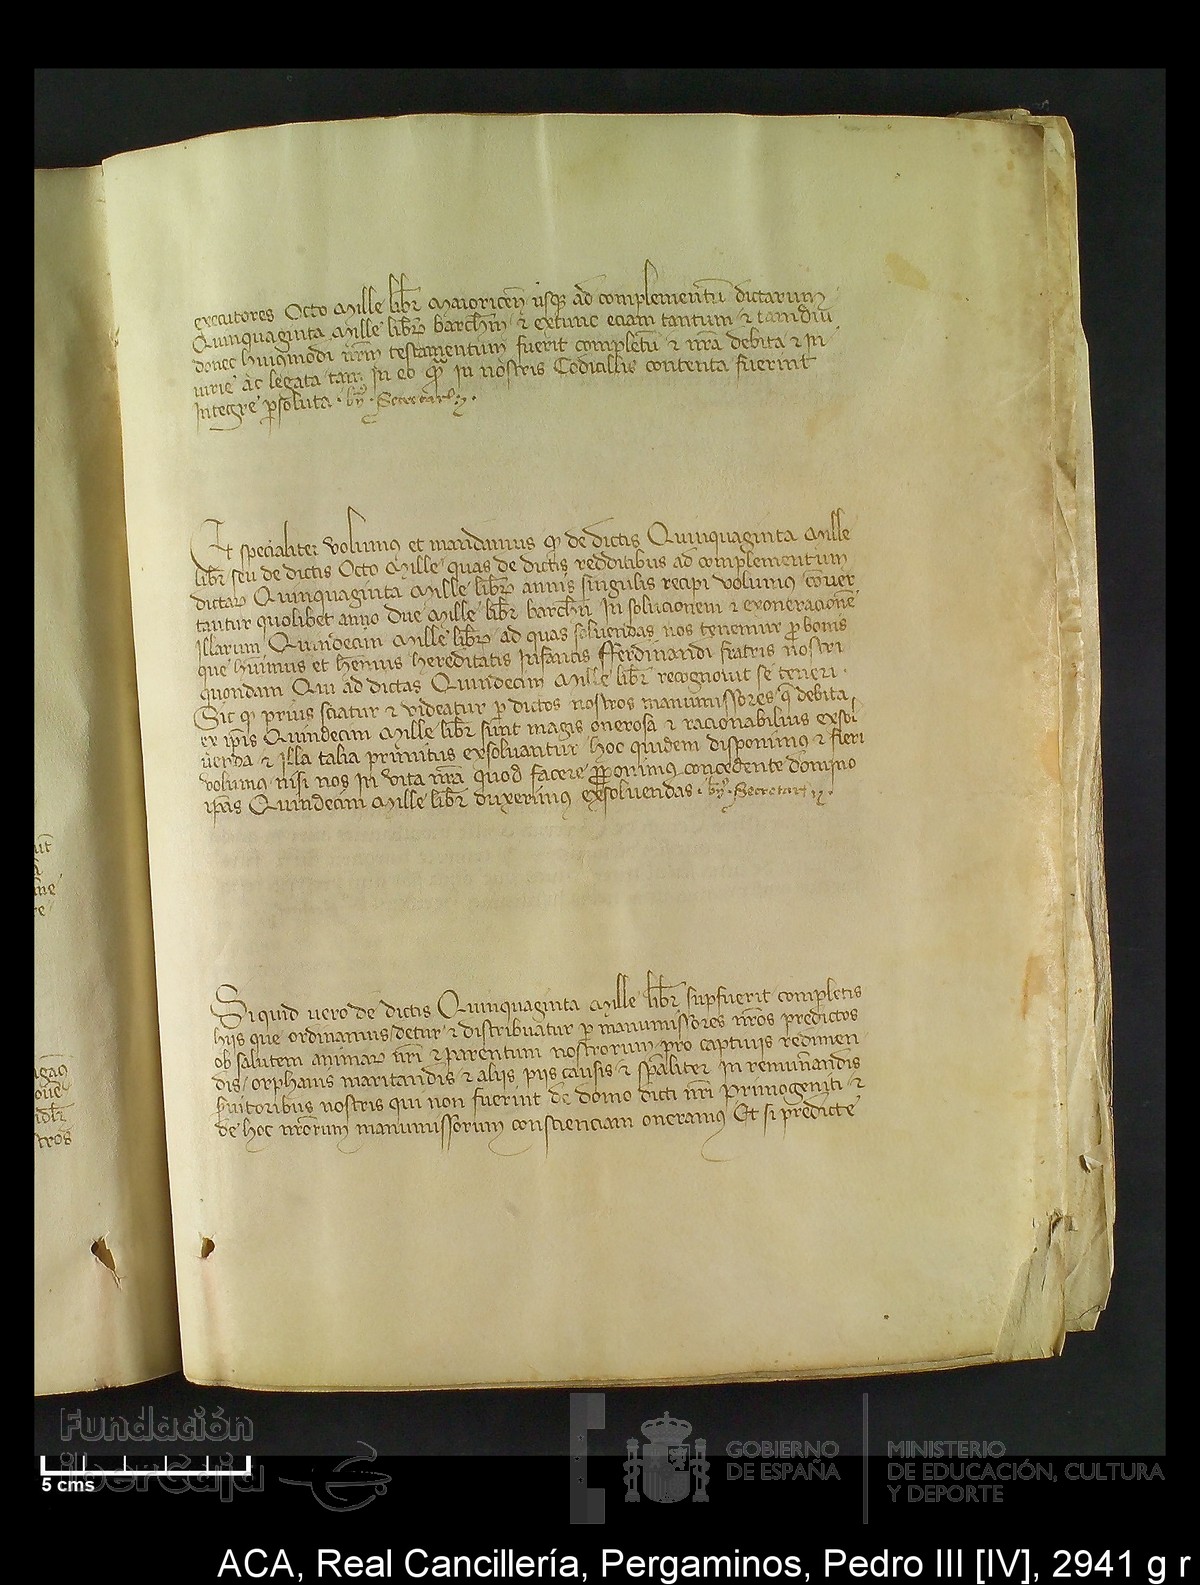 executores Octo Mille libr̄ Maioricen̄ usq̨ ad complementū dictarum
Quinquaginta Mille libr̄ barchn̄ / ⁊ extunc eciam tantum ⁊ tamdiu
donec huiqmodi nr̄m testamentum fuerit completū ⁊ nr̄a debita ⁊ in
iurie ac legata tam In eo q̄ In nostris Codicillis contenta fuerint
Integre p̱soluta .
Et specialiter volumꝰ et mandamus ꝙ de dictis Quinquaginta Mille
libr̄ seu de dictis Octo Mille quas de dictis redditibus ad complementum
dictaꝝ Quinquaginta Mille libr̄ annis singulis recipi volumꝰ cōuer
tantur quolibet anno due Mille libr̄ barchn̄ In solucionem ⁊ exoneracionē
Illarum Quindecim Mille libr̄ ad quas soluendas nos tenemur p̱ bonis
que huimus et hem̄us hereditatis Infantis fferdinandi fratris nostri
quondam Qui ad dictas Quindecim Mille libr̄ recognouit se teneri .
Sic ꝙ prius sciatur ⁊ videatur p̱ dictos nostros manumissores q̄ debita
ex ip̄is Quindecim Mille libr̄ sunt magis onerosa ⁊ racionabilius exsol
uenda ⁊ Illa talia primitus exsoluantur hoc quidem disponimꝰ ⁊ fieri
volumꝰ nisi nos In vita nr̄a quod facere p̱ponimꝰ concedente domino
ip̄as Quindecim Mille libr̄ duxerimꝰ exsoluendas .
Siquid uero de dictis Quinquaginta Mille libr̄ sup̱fuerit completis
hijs que ordinamus / detur ⁊ distribuatur p̱ manumissores nr̄os predictos
ob salutem animaꝝ nr̄i ⁊ parentum nostrorum / pro captiuis redimen
dis / orphanis maritandis ⁊ alijs pijs causis / ⁊ sp̄aliter In remun̄andis
s̄uitoribus nostris qui non fuerint de domo dicti nr̄i Primogeniti / ⁊
de hoc nr̄orum manumissorum conscienciam oneramꝰ Et si predicte
Fundación
iberCaja
5 cms
GOBIERNO
DE ESPAÑA
MINISTERIO
DE EDUCACIÓN, CULTURA
Y DEPORTE
ACA, Real Cancillería, Pergaminos, Pedro III [IV], 2941 g r